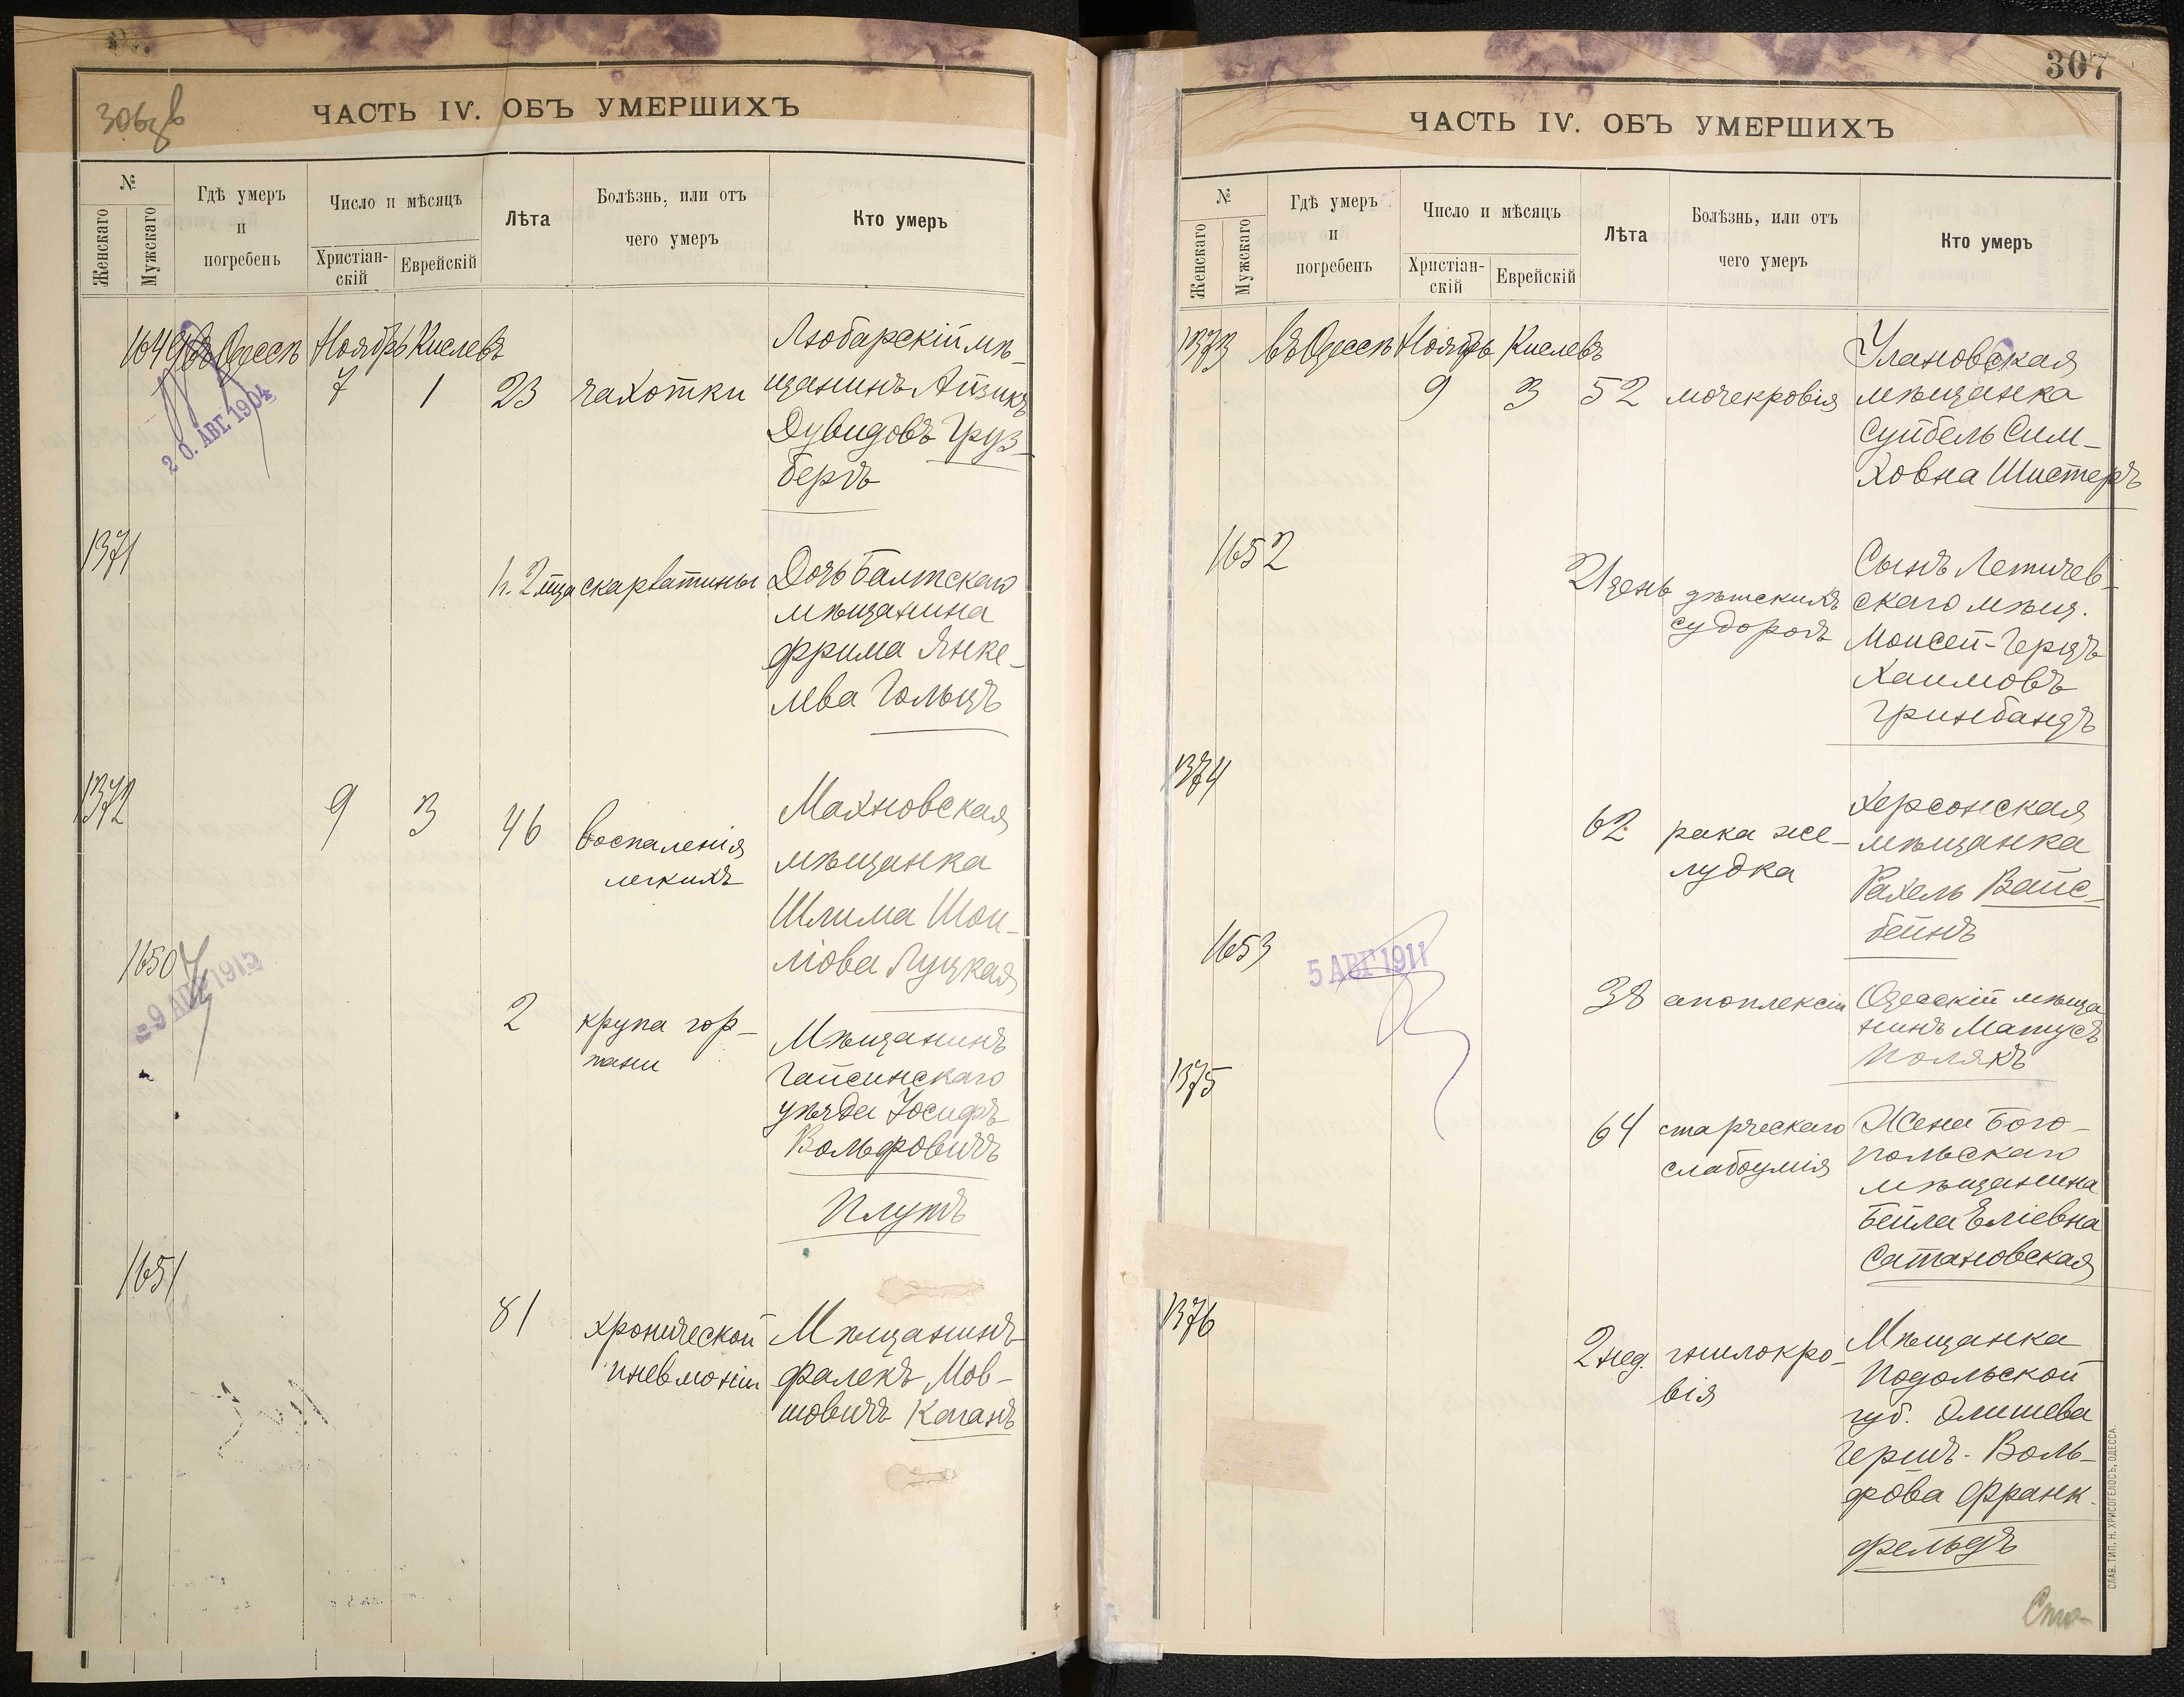 306 об
ЧАСТЬ IV. ОБЪ УМЕРШИХЪ
№
Женскаго
Мужскаго
Гдѣ умеръ
и
погребенъ
Число и мѣсяцъ
Христіан-
скій
Еврейскій
Лѣта
Болѣзнь, или отъ
чего умеръ
Кто умеръ
1649 въ Одессѣ Ноябрь Кислевъ
7 1 23 чахотки
Любарскій мѣ-
щанинъ Айзикъ
Дувидовъ Груз-
бергъ
20. АВГ. 1904
1371
1 г. 2 мѣца скарлатины
Дочь Балтскаго
мѣщанина
Фрима Янке-
лева Гольцъ
1372
9 3 46 воспаленія
легкихъ
Махновская
мѣщанка
Шлима Шои-
лiова Луцкая
1650
-9 АПР 1913
2 крупа гор-
тани
Мѣщанинъ
Гайсинскаго
уѣзда Іосифъ
Вольфовичъ
Плутъ
1651
81 хронической
пневмоніи
Мѣщанинъ
Фалекъ Мов-
шовичъ Каганъ
307
ЧАСТЬ IV. ОБЪ УМЕРШИХЪ
№
Женскаго
Мужскаго
Гдѣ умеръ
и
погребенъ
Число и мѣсяцъ
Христіан-
скій
Еврейскій
Лѣта
Болѣзнь, или отъ
чего умеръ
Кто умеръ
1373 въ Одессѣ Ноябрь Кислевъ
9 3 52 мочекровія
Улановская
мѣщанка
Суйбель Сим-
ховна Шистеръ
1652
21 день дѣтскихъ
судорогъ
Сынъ Летичев-
скаго мѣщ.
Моисей-Герцъ
Хаимовъ
Гринбандъ
1374
62 рака же-
лудка
Херсонская
мѣщанка
Рахель Вайс-
бейнъ
1653
5 АВГ 1911
38 апоплексіи
Одесскій мѣща
нинъ Матусъ
Полякъ
1375
64 старческаго
слабоумія
Жена Бого-
польскаго
мѣщанина
Бейла Еліевна
Сатановская
1376
2 нед. гнилокро-
вія
Мѣщанка
Подольской
губ. Олишева
Гершъ-Воль-
фова Франк-
фельдъ
Ста-
СЛАВ. ТИП. Н. ХРИСОГЕЛОСЪ, ОДЕССА.